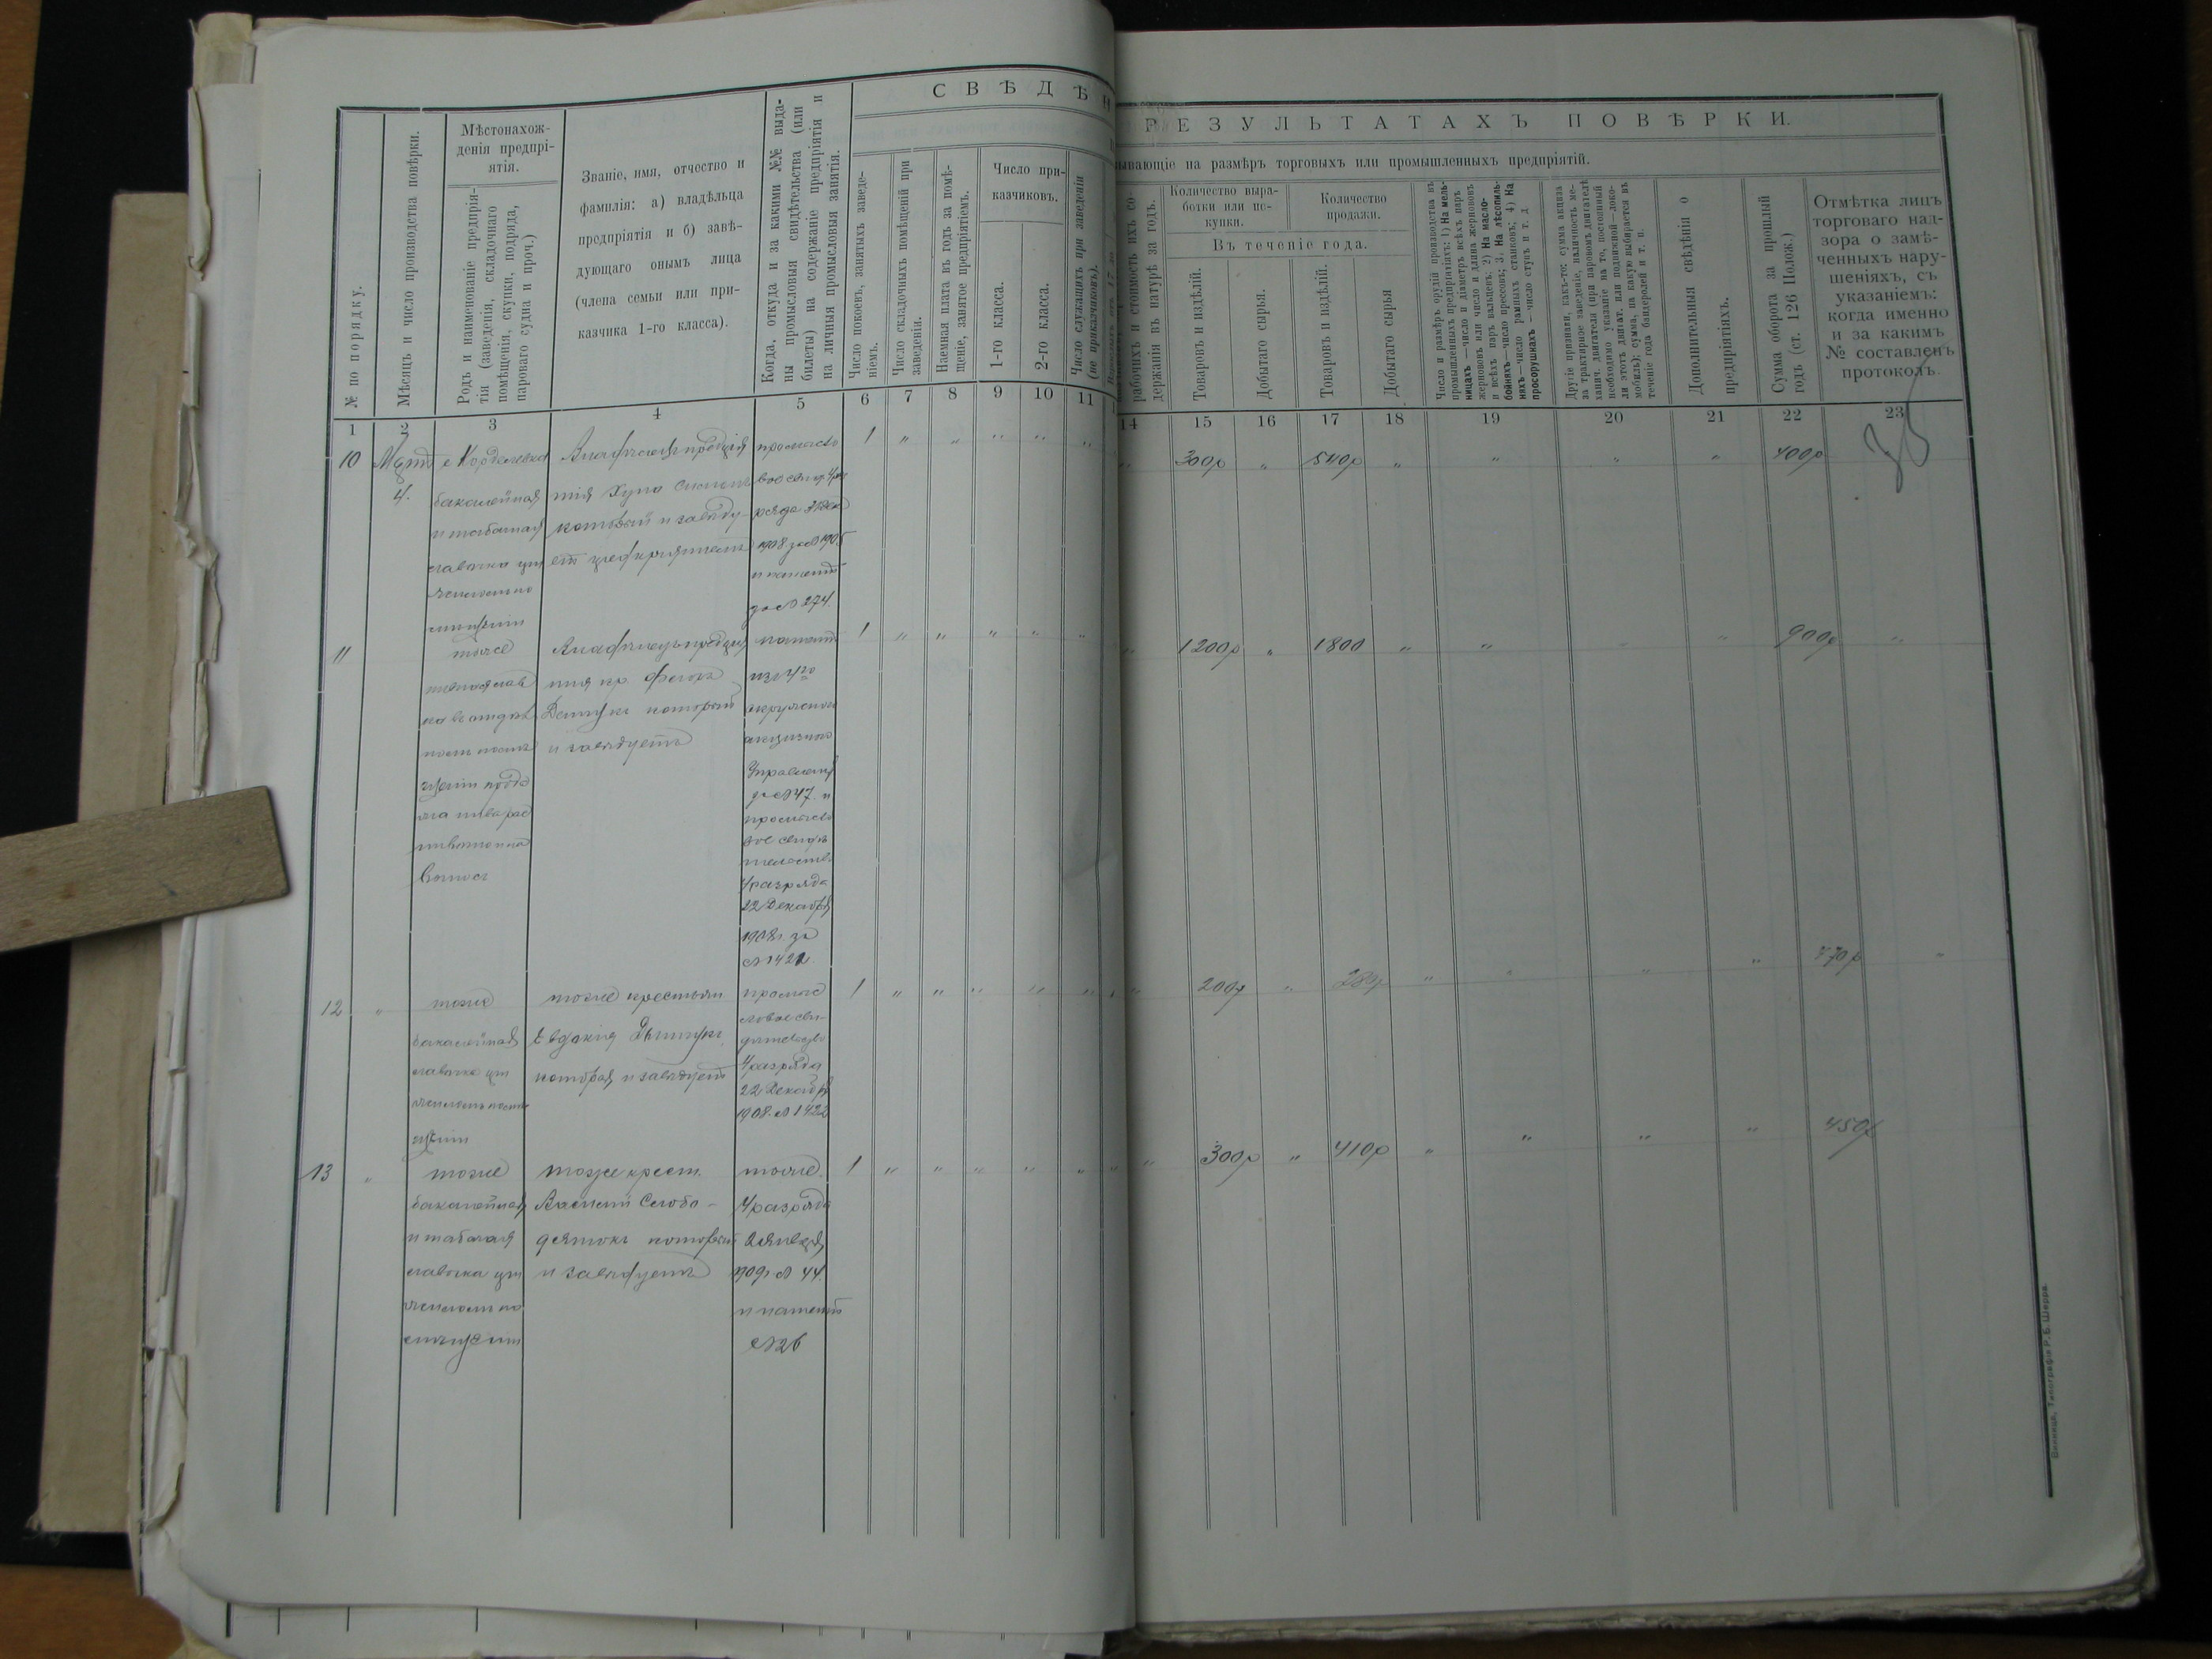 СВѢДѢН
РЕЗУЛЬТАТАХЪ ПОВѢРКИ.
ывающіе на размѣръ торговыхъ или промышленныхъ предпріятій.
№ по порядку.
Мѣсяцъ и число производства повѣрки.
Мѣстонахож-
денія предпрі-
ятія.
Родъ и наименованіе предпрія-
тія (заведенія, складочнаго
помѣщенія, скупки, подряда,
пароваго судна и проч.)
Званіе, имя, отчество и
фамилія: а) владѣльца
предпріятія и б) завѣ-
дующаго онымъ лица
(члена семьи или при-
казчика 1-го класса).
Когда, откуда и за какими №№ выда-
ны промысловыя свидѣтельства (или
билеты) на содержаніе предпріятія и
на личныя промысловыя занятія.
Число покоевъ, занятыхъ заведе-
ніемъ.
Число складочныхъ помѣщеній при
заведеніи.
Наемная плата въ годъ за помѣ-
щеніе, занятое предпріятіемъ.
Число при-
казчиковъ.
1-го класса.
2-го класса.
Число служащихъ при заведеніи
(не приказчиковъ).
рабочихъ и стоимость ихъ со-
держанія въ натурѣ за годъ.
Количество выра-
ботки или по-
купки.
Количество
продажи.
Въ теченіе года.
Товаровъ и издѣлій.
Добытаго сырья.
Товаровъ и издѣлій.
Добытаго сырья
Число и размѣръ орудій производства въ
промышленныхъ предпріятіяхъ: 1) На мель-
ницахъ—число и діаметръ всѣхъ паръ
жернововъ или число и длина жернововъ
и всѣхъ паръ вальцевъ; 2) На масло-
бойняхъ—число прессовъ; 3) На лѣсопиль-
няхъ—число рамныхъ становъ; 4) На
просорушкахъ—число ступъ и т. д.
Другіе признаки, какъ-то: сумма акциза
за трактирное заведеніе, наличность ме-
ханич. двигателя (при паровомъ двигателѣ
необходимо указаніе на то, постоянный
ли этотъ двигат. или подвижной—локо-
мобиль); сумма, на какую выбирается въ
теченіе года бандеролей и т. п.
Дополнительныя свѣдѣнія о
предпріятіяхъ.
Сумма оборота за прошлый
годъ (ст. 126 Полож.)
Отмѣтка лицъ
торговаго над-
зора о замѣ-
ченныхъ нару-
шеніяхъ, съ
указаніемъ:
когда именно
и за какимъ
№ составленъ
протоколъ.
1 2 3 4 5 6 7 8 9 10 11
14 15 16 17 18 19 20 21 22 23
10 Мартъ
4.
с Кордылевка
бакалейная
и табачная
лавочка при
жиломъ по
мѣщеніи
который и завѣду-
етъ предпріятіемъ
промысло
вое свид 4 раз
ряда
1908 за № 1905
и патентъ
за № 274.
1 " " " " " " 300р " 540р " " " " 400р
11
тоже
пивная лав
ка въ отдѣль
номъ помѣ
щеніи прода
жа пива рас
пивочно и на
выносъ
который
и завѣдуетъ
патентъ
изъ 4го
округного
акцизнаго
Управленія
за № 47. и
промысло
вое свидѣ
тельство
4 разряда
22 Декабря
1908г. за
№ 1421.
1 " " " " " " 1200р " 1800 " " " " 900р "
12 "
тоже
бакалейная
лавочка при
жиломъ помѣ
щеніи
тоже крестьян
Евдокія
которая и завѣдуетъ
промыс
ловое сви-
дѣтельство
4 разряда
22 Декабря
1908. № 1422
1 " " " " " " 200р " 280р " " " " 270р "
13 "
тоже
бакалейная
и табачная
лавочка при
жиломъ по
мѣщеніи
тоже крест.
Василій Слобо-
дянюкъ который
и завѣдуетъ
тоже.
4 разряда
2 Января
1909г № 44.
и патентъ
№ 26
1 " " " " " " 300р " 410р " " " " 450р
Винница, Типографія Р. Б. Шерра